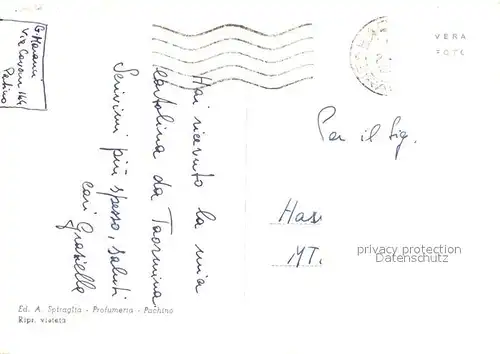 G Maranci
Via Cavour 144
Patino
Hai ricevuto la mia
Cartolina da Taormina.
Scrivimi più spesso, saluti
cari Graziella
VERA
FOTO
Per il Sig.
Has
MT.
privacy protection
Datenschutz
Ed. A. Spiraglia - Profumeria - Pachino
Ripr. vietata